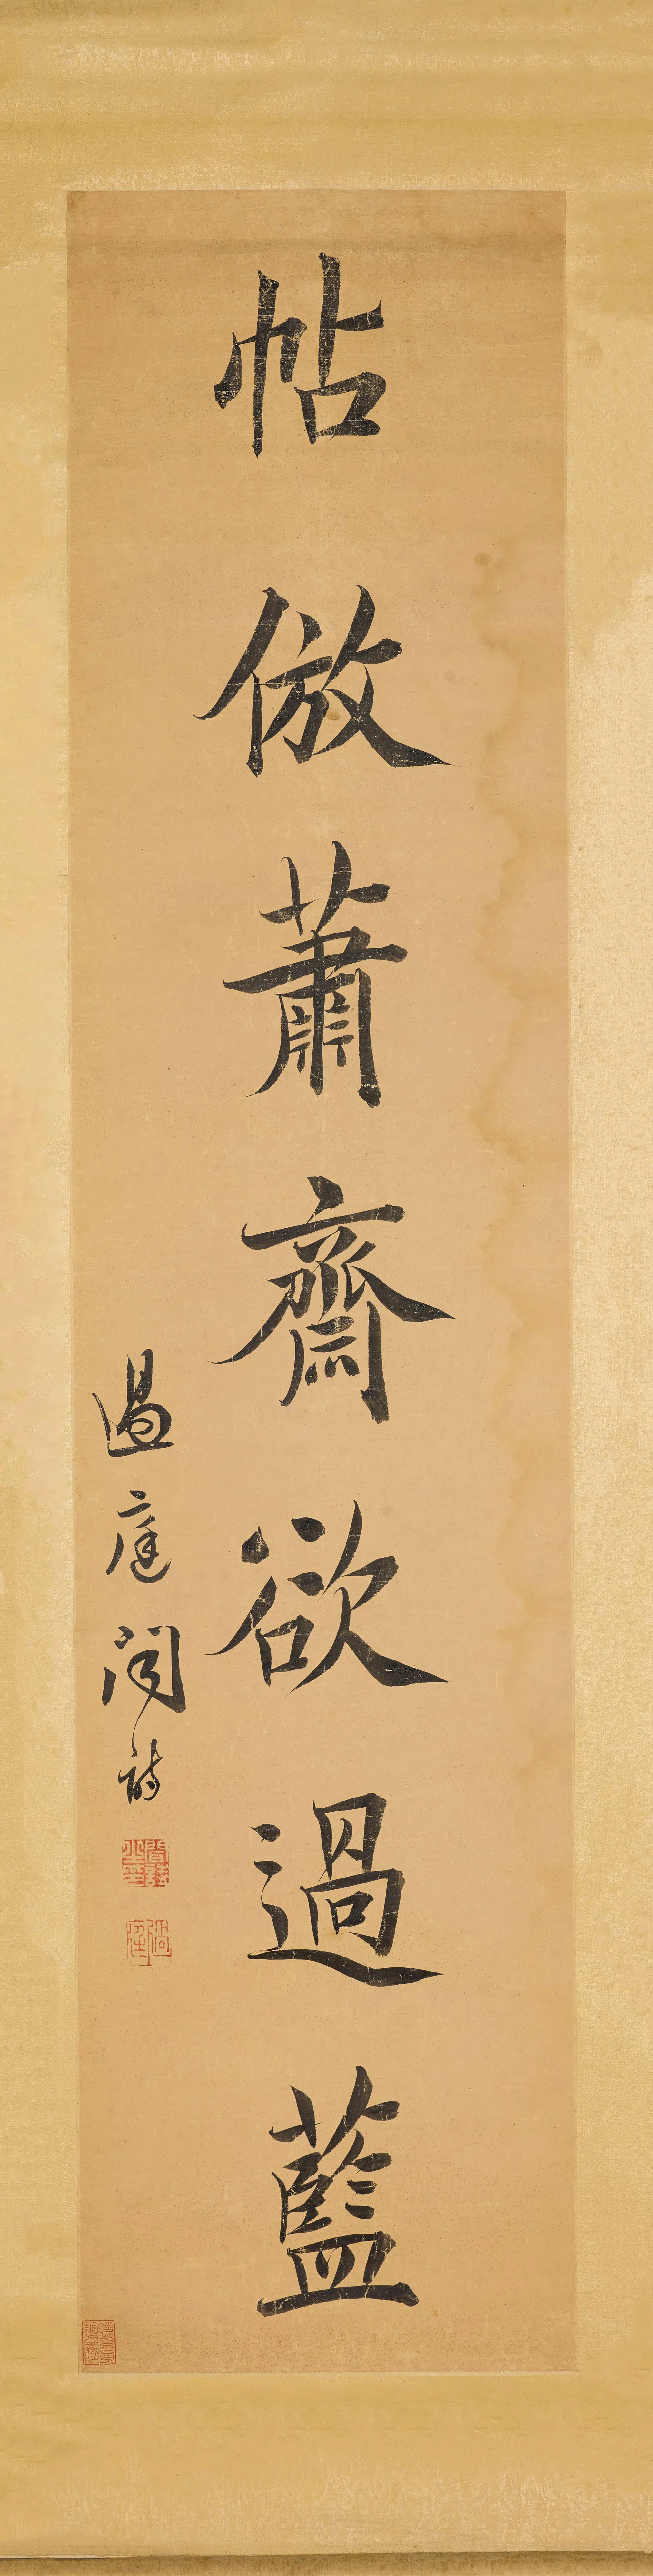 帖倣蕭齋欲過藍
過庭聞詩